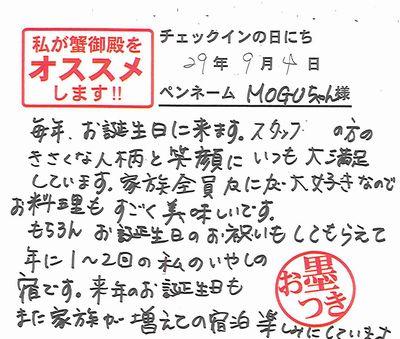 私が蟹御殿を
オススメ
します!!
チェックインの日にち
29年9月4日
ペンネーム MOGUちゃん様
毎年、お誕生日に来ます。スタッフ の方の
きさくな人柄と笑顔に いつも大満足
しています。家族全員 大好きなので
お料理も すごく美味しいです。
もちろん お誕生日のお祝いもしてもらえて
年に1～2回の私のいやしの
宿です。来年のお誕生日も
また家族が増えての宿泊 楽しみにしています
お墨
つき